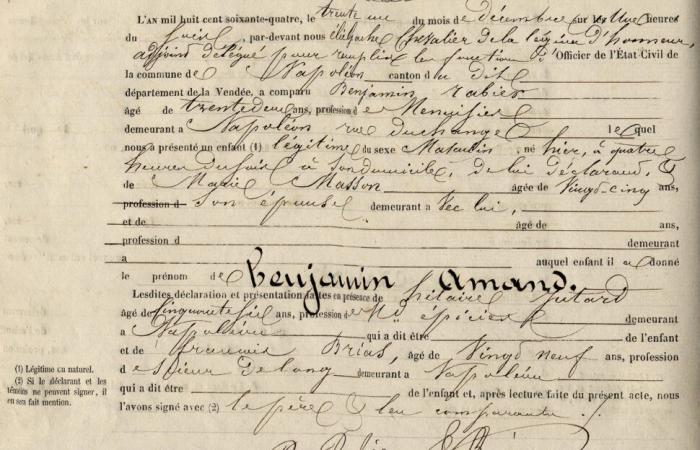 L'AN mil huit cent soixante-quatre, le trente un du mois de décembre sur les onze heures
du soir, par-devant nous Chevalier de la légion d'honneur,
adjoint délégué pour remplir les fonctions d'Officier de l'État Civil de
la commune de Napoléon canton du dit
département de la Vendée, a comparu Benjamin rabier
âgé de trente deux ans, profession de Menuisier
demeurant a Napoléon rue duchange lequel
nous a présenté un enfant (1) légitime du sexe Masculin, né hier, à quatre
heures du soir à son domicile, de lui déclarant, &
de Marie Masson âgée de Vingt-cinq ans,
profession d son épouse demeurant avec lui,
et de âgé de ans,
profession d demeurant
a auquel enfant il a donné
le prénom de Benjamin Amand.
Lesdites déclaration et présentation faites en présence de hilaire
âgé de Cinquante six ans, profession de Md épicier demeurant
a Napoléon qui a dit être de l'enfant
et de françois Brias, âgé de Vingt neuf ans, profession
de long demeurant a Napoléon
qui a dit être de l'enfant et, après lecture faite du présent acte, nous
l'avons signé avec (2) le père & les comparants ./.
(1) Légitime ou naturel.
(2) Si le déclarant et les
témoins ne peuvent signer, il
en sera fait mention.